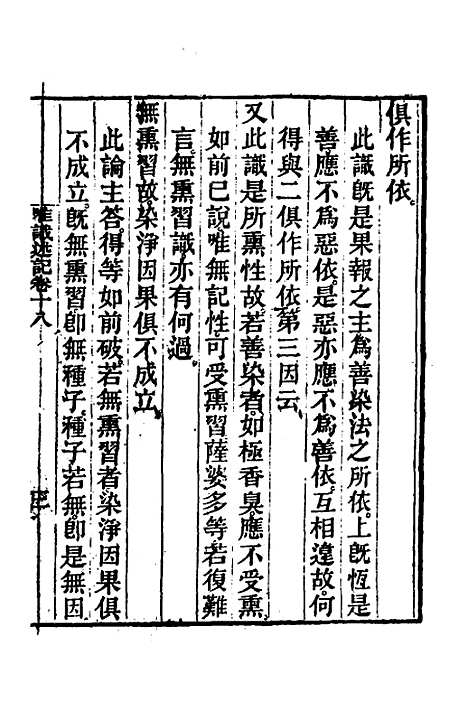 俱作所依。
此識既是果報之主爲善染法之所依。上既恆是
善應不爲惡依。是惡亦應不爲善依。互相違故。何
得與二俱作所依。第三因云。
又此識是所熏性故。若善染者。如極香臭。應不受熏。
如前已說。唯無記性。可受熏習。薩婆多等。若復難
言。無熏習識。亦有何過。
無熏習故。染淨因果俱不成立。
此論主答。得等如前破。若無熏習者。染淨因果俱
不成立。既無熏習。卽無種子。種子若無。卽是無因
唯識述記卷十八